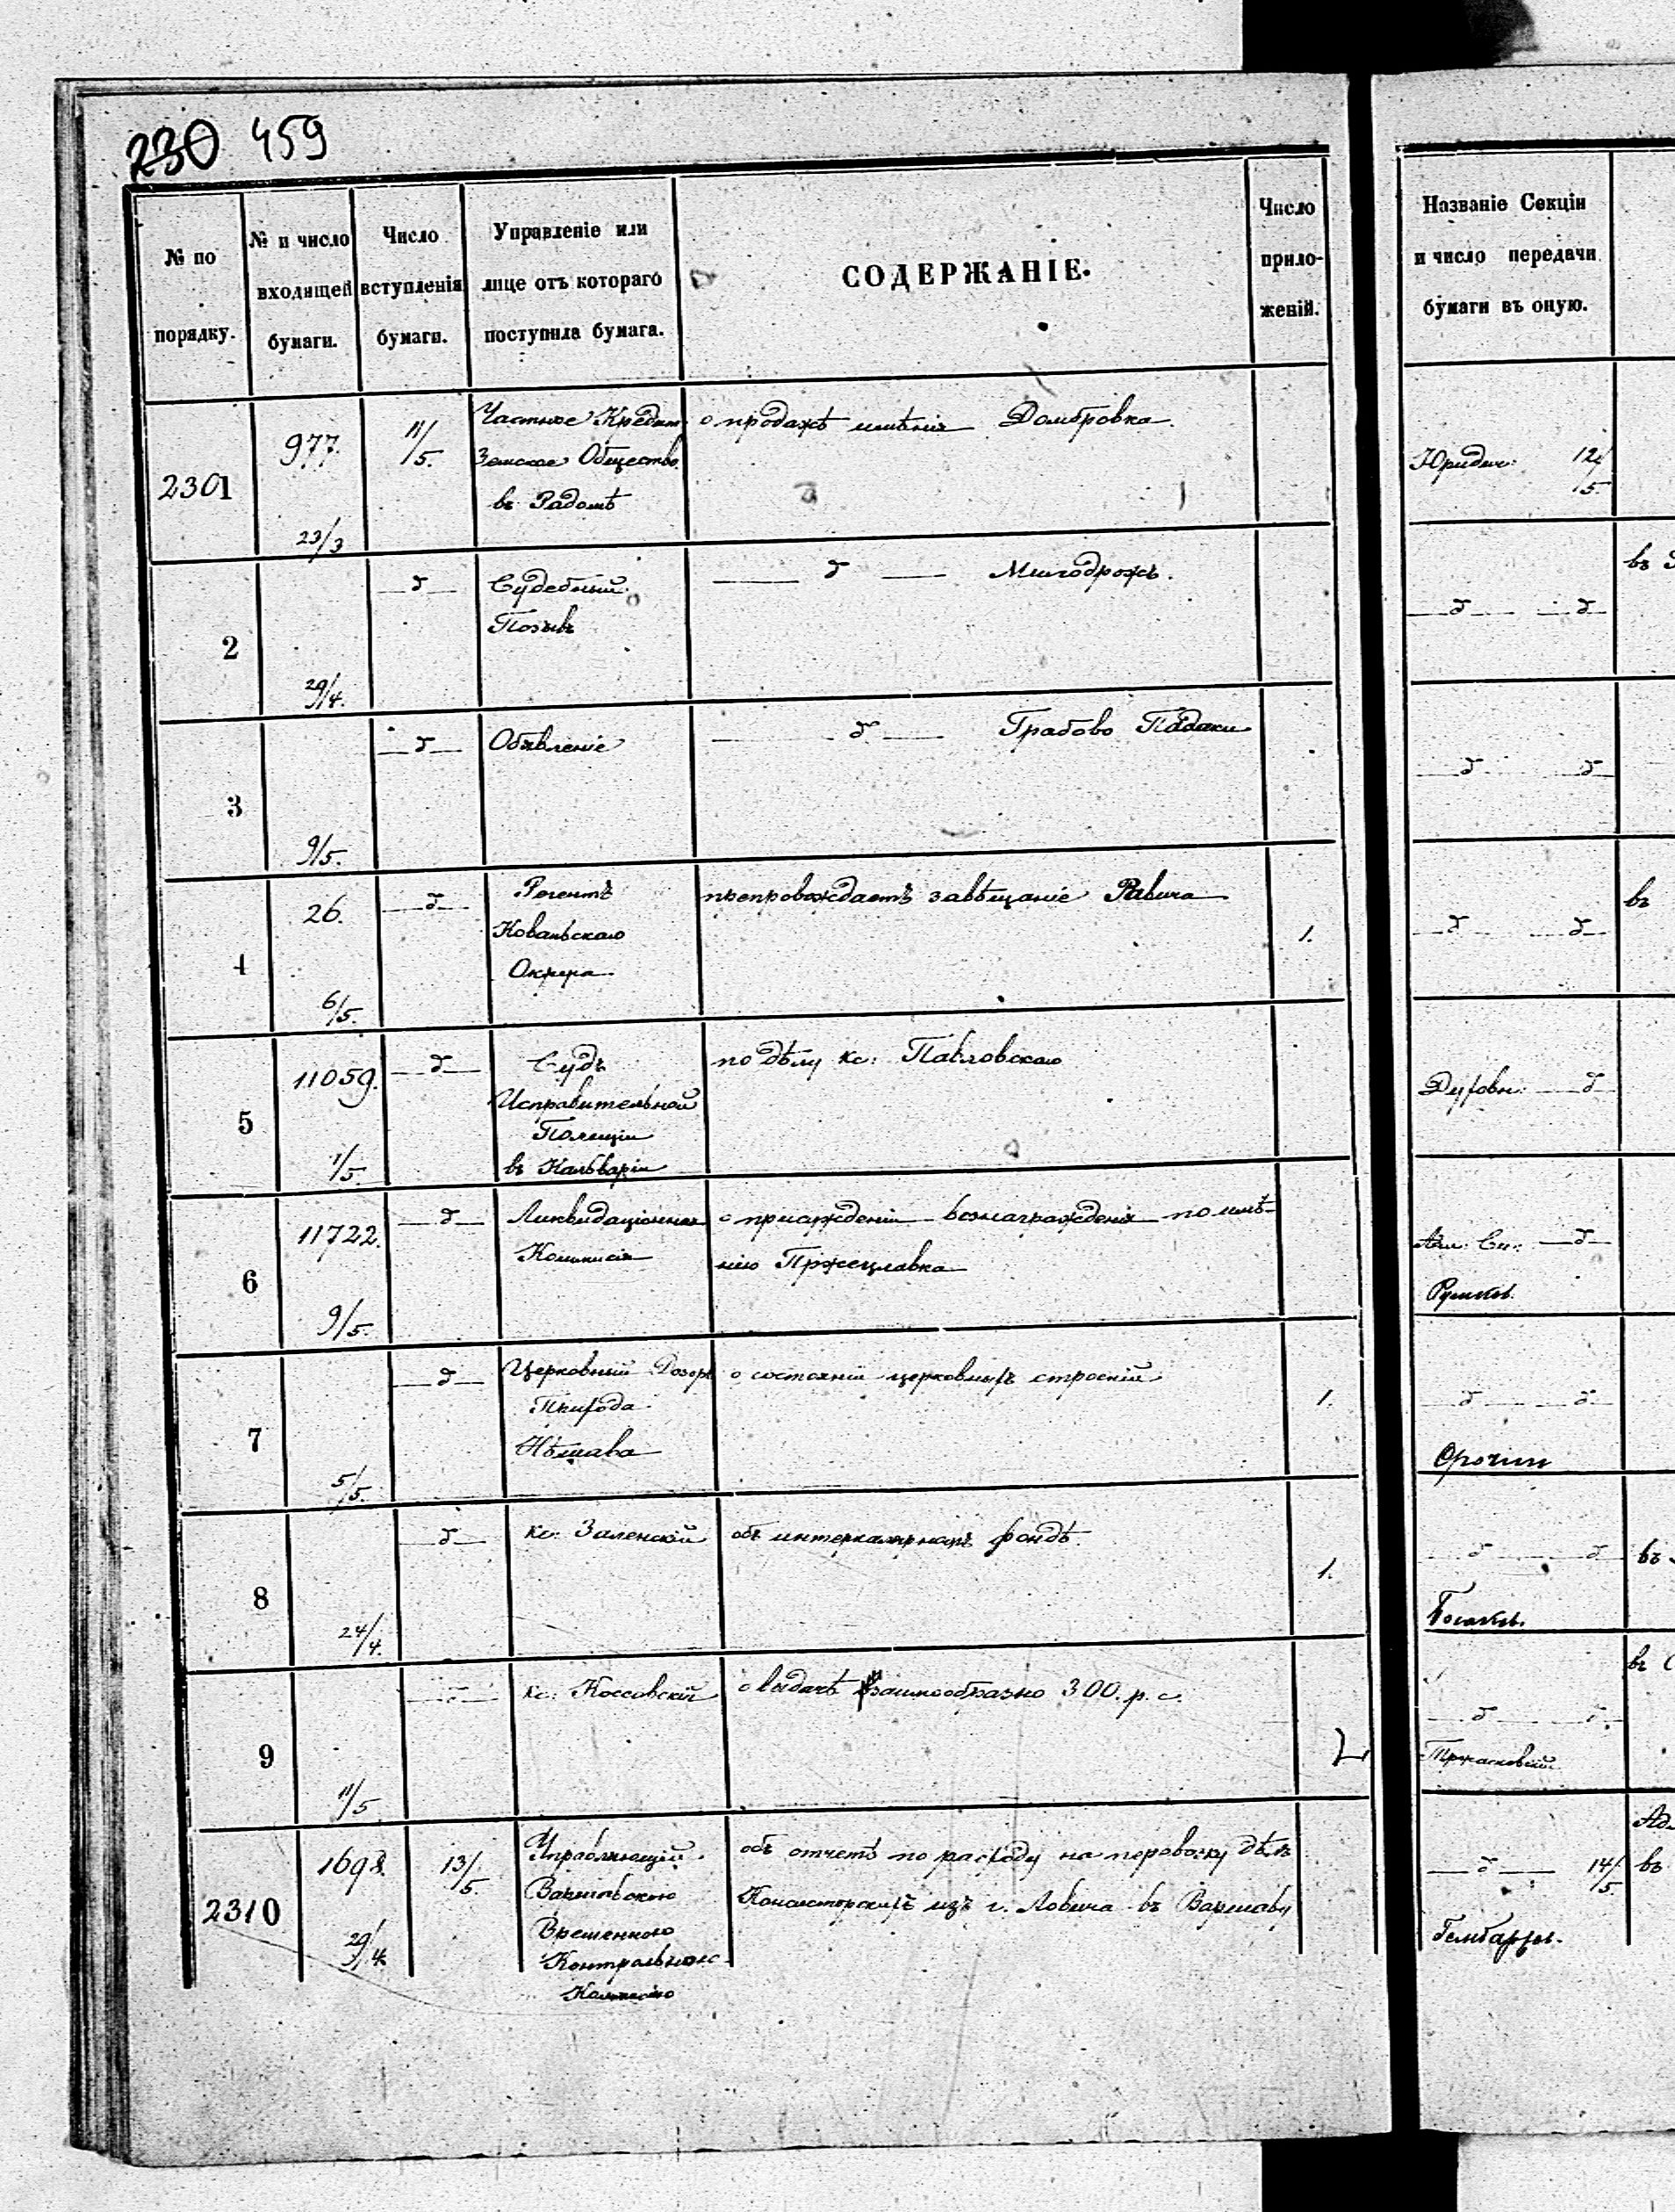 230 459
№ по порядку.
№ и число входящей бумаги.
Число вступленія бумаги.
Управленіе или лице отъ котораго поступила бумага.
СОДЕРЖАНІЕ.
Число приложеній.
Названіе Секціи и число передачи бумаги въ оную.
2301
977.
23/3
11/5.
Частное Кредит.
Земское Общество
въ Радомѣ
о продажѣ имѣнія Домбровка.
Юридич: 12/5.
2
29/4.
д
Судебный
Позывъ
д
д д
въ
3
9/5.
д
Объявленіе
д Грабово
д д
4
26.
6/5.
д
Регентъ
Ковальскаго
Округа
препровождаетъ завѣщаніе Равича
1.
д д
въ
5
11059.
1/5.
д
Судъ
Исправительной
Полиціи
въ Кальваріи
по дѣлу кс: Павловскаго
Духовн: д
6
11722.
9/5.
д
Ликвидаціонная
Коммисія
о присужденіи вознагражденія по имѣ-
нію Пржецлавка
д
7
5/5.
д
Церковный Дозоръ
Прихода
Нѣшава
о состояніи церковныхъ строеній
1.
д д
8
24/4.
д
кс: Заленскій
объ интеркалярномъ фондѣ.
1.
д д
въ
9
11/5
кс: Коссовскій
о выдачѣ заимообразно 300. р. с.
д
въ С
2310
1698.
29/4
13/5.
Управляющій
Варшавскою
Временною
Контрольною
Коммисіею
объ отчетѣ по расходу на перевозку дѣлъ
Консисторскихъ изъ г. Ловича въ Варшаву
д 14/5.
въ